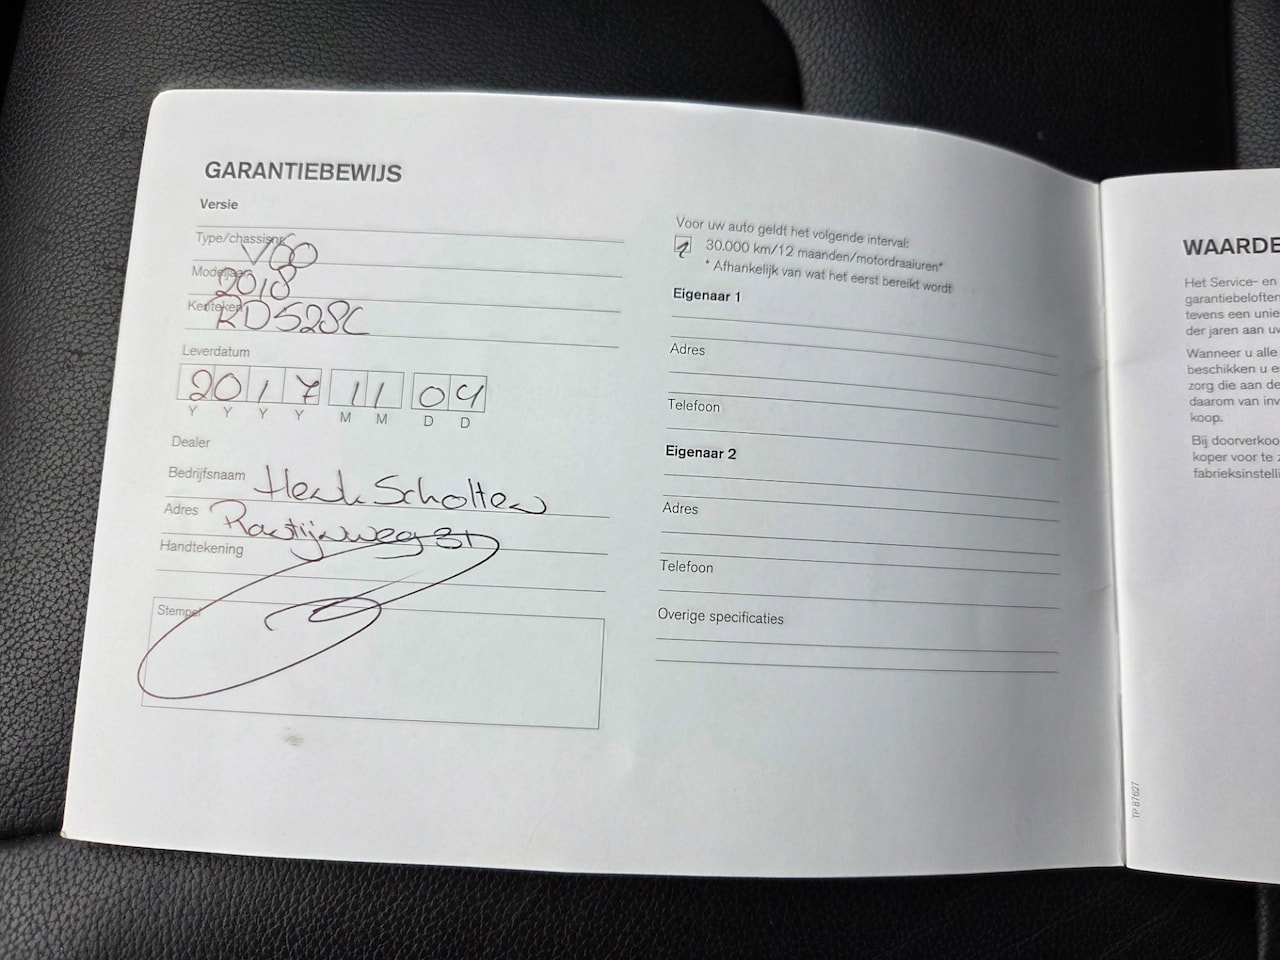 GARANTIEBEWIJS
Versie
Type/chassisnr. V60
Modeljaar 2018
Kenteken RD528C
Leverdatum
2017 11 04
Y Y Y Y M M D D
Dealer
Bedrijfsnaam Henk Scholten
Adres 31
Handtekening
Stempel
Voor uw auto geldt het volgende interval:
30.000 km/12 maanden/motordraaiuren*
* Afhankelijk van wat het eerst bereikt wordt
Eigenaar 1
Adres
Telefoon
Eigenaar 2
Adres
Telefoon
Overige specificaties
TP 87627
WAARDE
Het Service- en
garantiebeloften
tevens een unie
der jaren aan uw
Wanneer u alle
beschikken u e
zorg die aan de
daarom van inv
koop.
Bij doorverkoo
koper voor te z
fabrieksinstelli